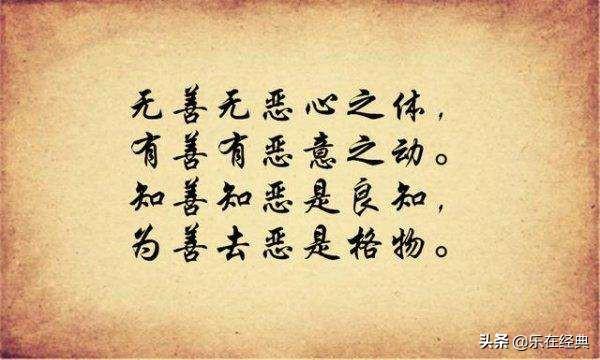 无善无恶心之体，
有善有恶意之动。
知善知恶是良知，
为善去恶是格物。
头条 @乐在经典